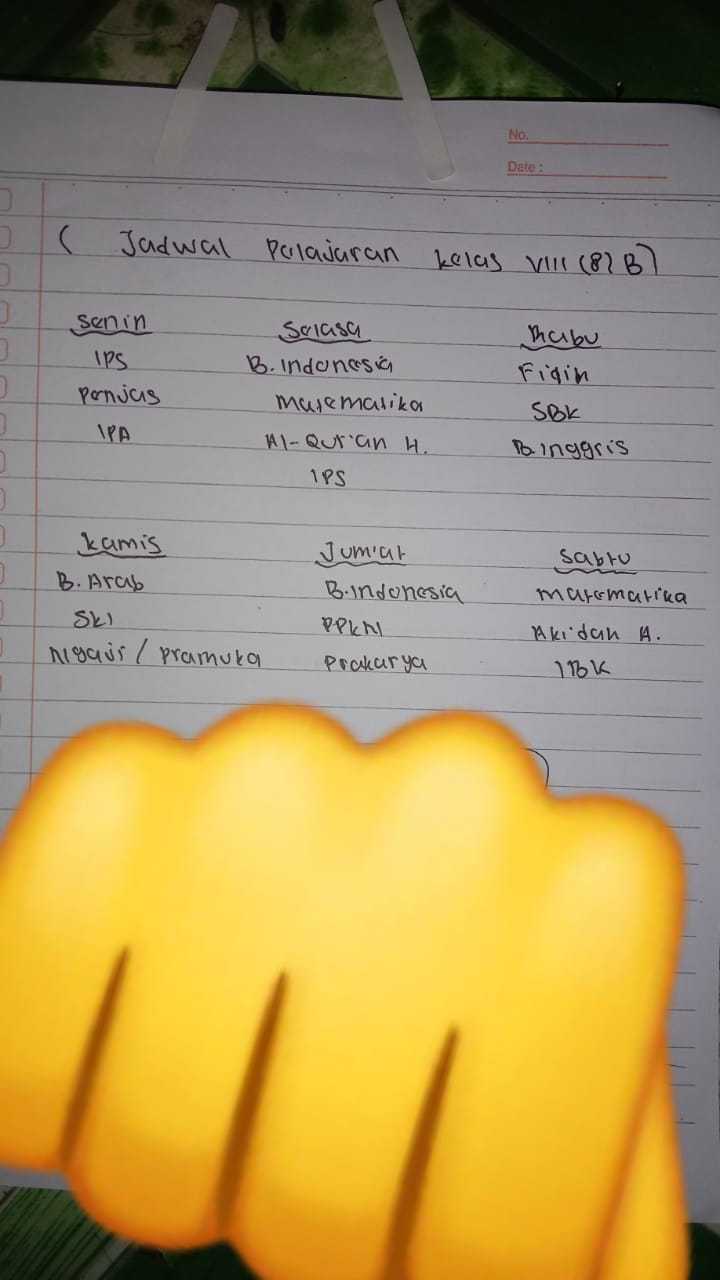 No.
Date :
( Jadwal Pelajaran kelas VIII (8) B)
Senin Selasa Rabu
IPS B. Indonesia Fiqih
Penjas Matematika SBK
IPA Al-Qur'an H. B. Inggris
IPS
Kamis Jum'at Sabtu
B. Arab B. Indonesia Matematika
SKI PPKN Akidah A.
Ngaji / Pramuka Prakarya